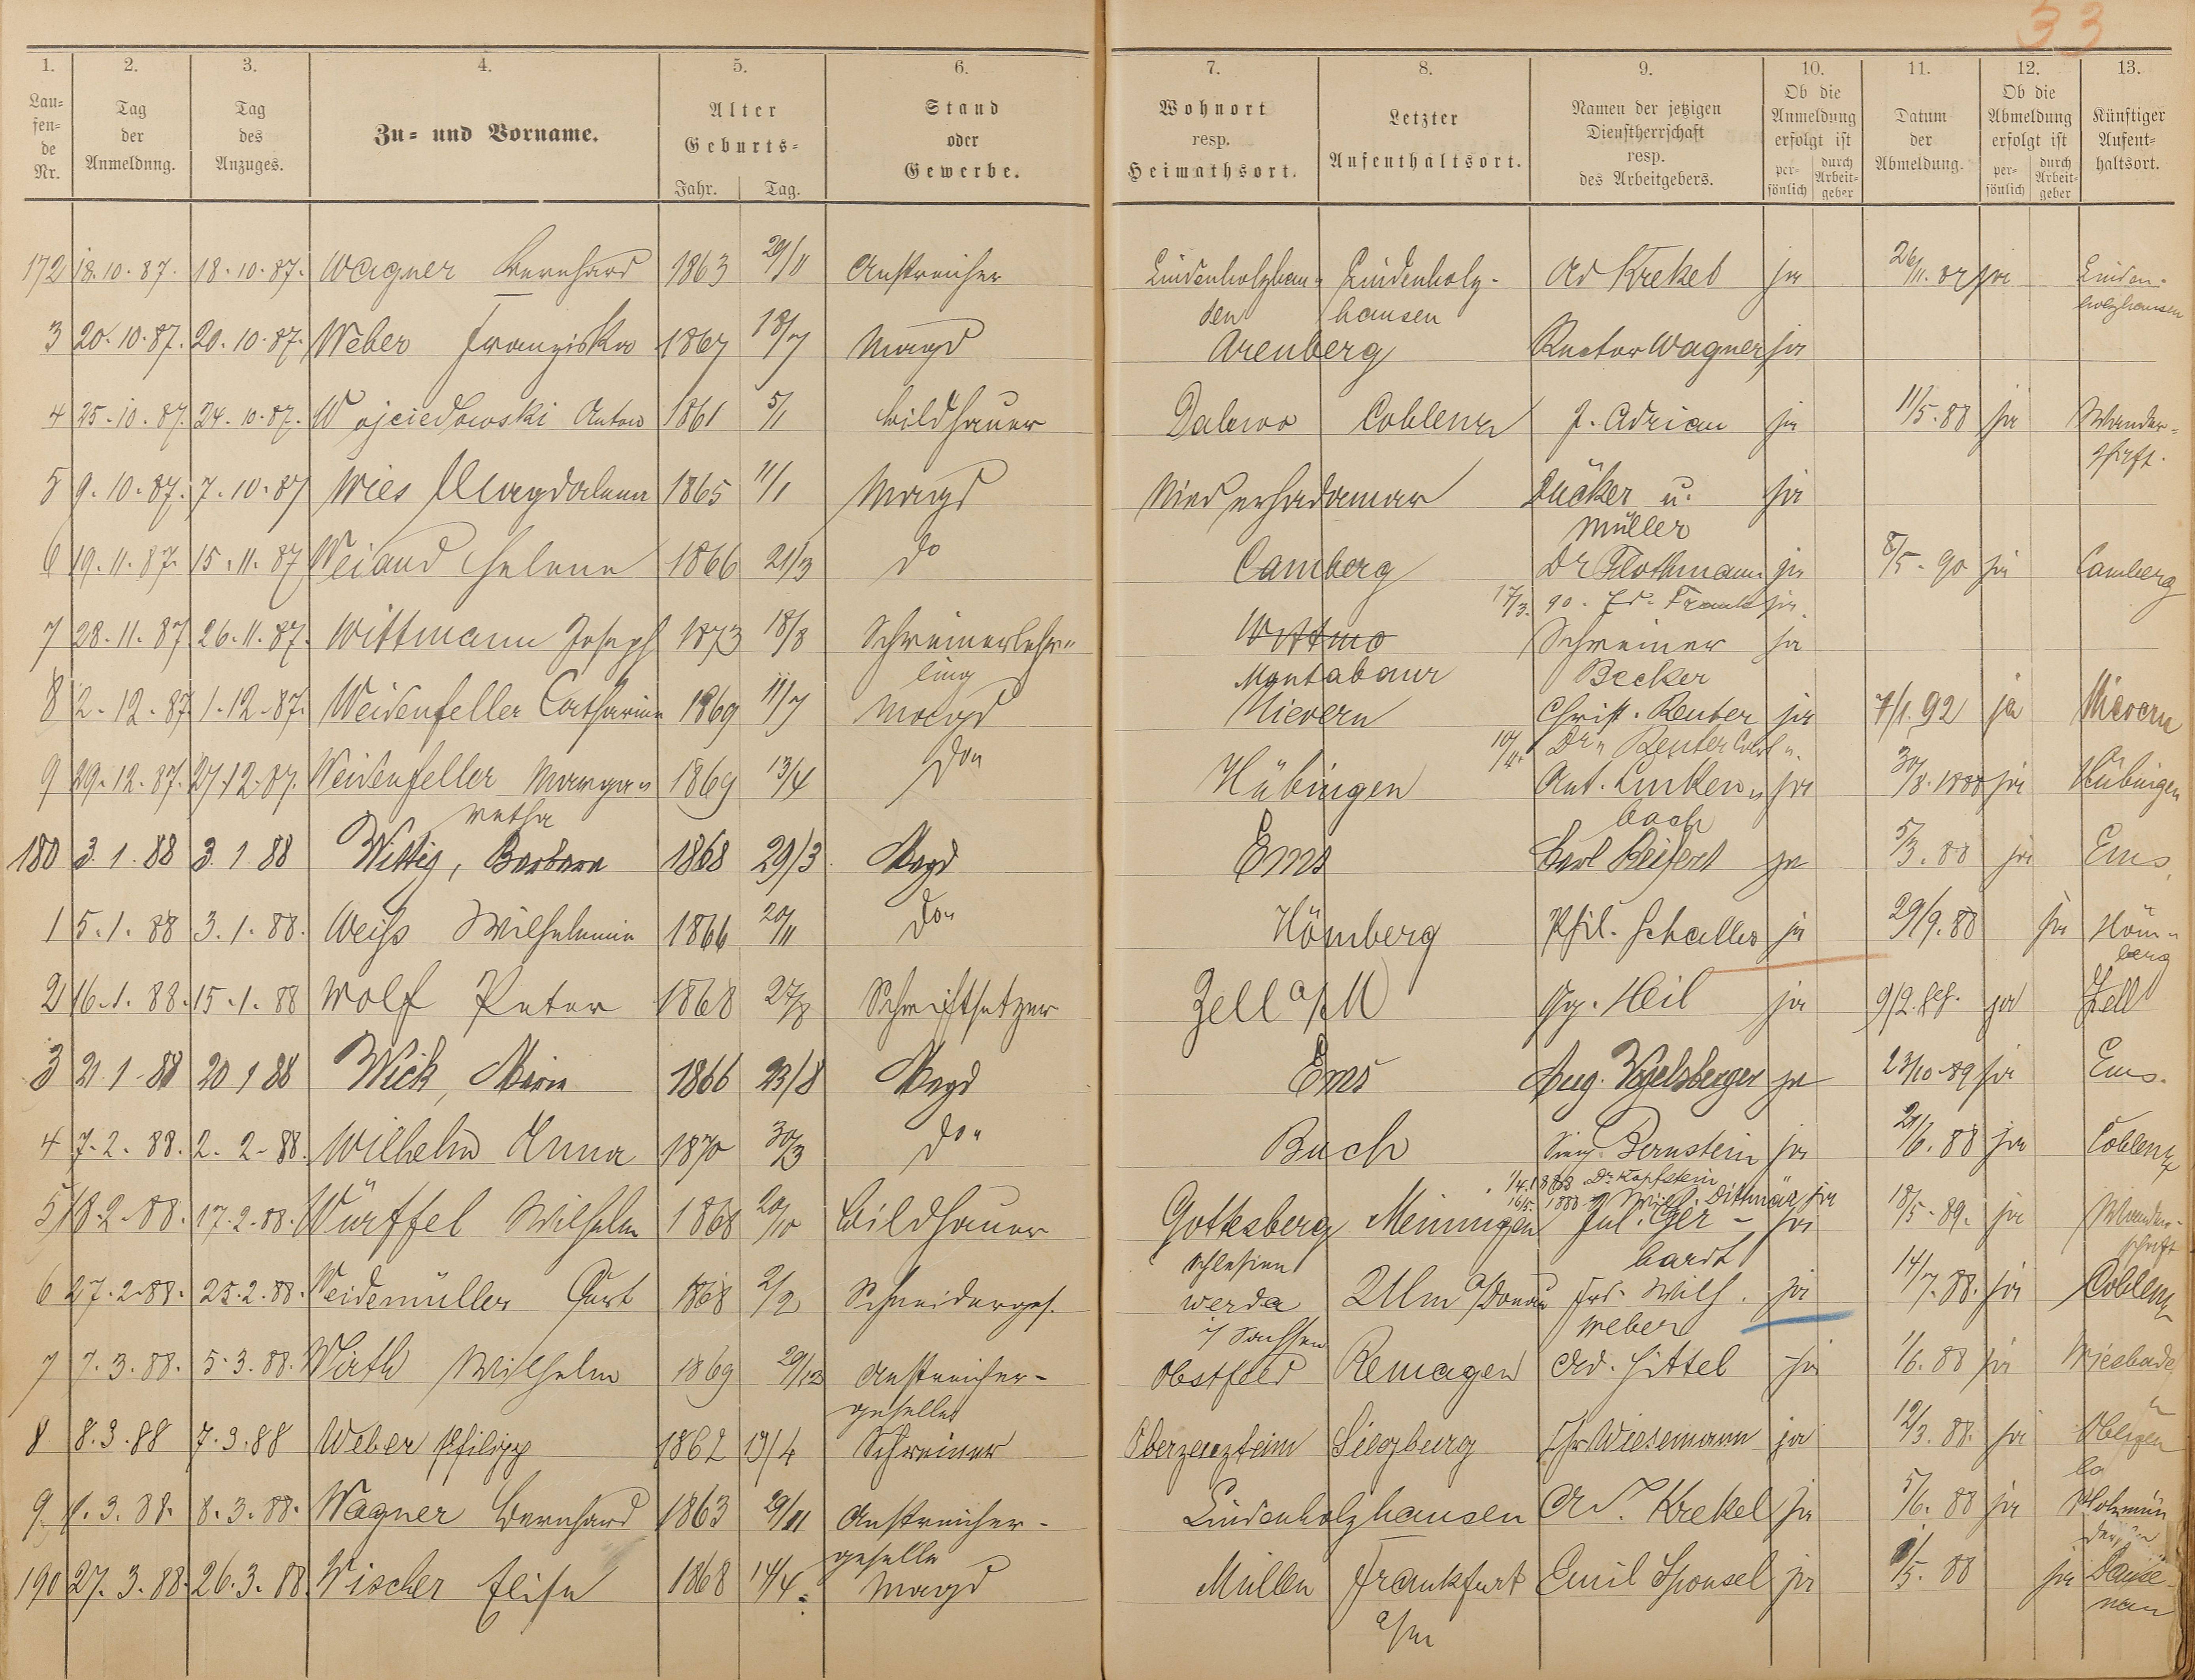 33
1. 2. 3. 4. 5. 6. 7. 8. 9. 10. 11. 12. 13.
Lau=fen=de Nr. Tag der Anmeldung. Tag des Anzuges. Zu= und Vorname. Alter Geburts= Jahr. Tag. Stand oder Gewerbe. Wohnort resp. Heimathsort. Letzter Aufenthaltsort. Namen der jetzigen Dienstherrschaft resp. des Arbeitgebers. Ob die Anmeldung erfolgt ist per=sönlich durch Arbeit=geber Datum der Abmeldung. Ob die Abmeldung erfolgt ist per=sönlich durch Arbeit=geber Künftiger Aufent=haltsort.
172 18.10.87. 18.10.87. Wagner Bernhard 1863 29/11 Anstreicher Lindenholzhau= Lindenholz- Ad Krekel ja 26/11.87 ja Linden-
den hausen holzhausen
3 20.10.87. 20.10.87. Weber Franziska 1867 18/7 Magd Arenberg Rector Wagner ja
4 25.10.87. 24.10.87. Wojciedowski Anton 1861 5/1 Bildhauer Dalewo Coblenz J. Adrian ja 11/5.88 ja Wander=
schaft.
5 9.10.87. 7.10.87 Wies Magdalena 1865 11/1 Magd Niederhadamar Dücker u. ja
Müller
6 19.11.87. 15.11.87 Weiand Helene 1866 21/3 do Camberg Dr Flothmann ja 8/5.90 ja Camberg
17/3. 90. Fr. Frank ja.
7 28.11.87 26.11.87. Wittmann Joseph 1873 18/8 Schreinerlehr= Wittmo Schreiner ja
ling Montabaur Becker
8 2.12.87 1.12.87. Weidenfeller Catharina 1869 11/7 Magd Nievern Christ. Reuter ja 7/1.92 ja Nievern
10/4. Dr. Reuter Carl
9 29.12.87. 27.12.87. Weidenfeller Marga= 1869 13/4 do" Hübingen Ant. Linken= ja 30/8.1888 ja Hübingen
retha bach
180 3.1.88 3.1.88 Wittig, Barbara 1868 29/3. Magd Ems Carl Reifert ja 5/3.88 ja Ems.
1 5.1.88 3.1.88. Weiß Wilhelmine 1866 20/11 do" Hömberg Phil. Schaller ja 29/9.88 ja Höm=
berg
2 16.1.88. 15.1.88 Wolf Peter 1868 27/8 Schriftsetzer Zell a/M Gg. Heil ja 9/2.88. ja Zell
3 21.1.88 20 1 88 Wick, Maria 1866 23/8 Magd Ems Aug. Vogelsberger ja 23/10.89 ja Ems.
4 7.2.88. 2.2.88. Wilhelm Anna 1870 30/3 do" Buch Sieg. Bernstein ja 21/6.88 ja Coblenz
1/4.1888 Dr. Kopfstein
16/5. 1888 Wilh. Dittmar ja
5 18.2.88. 17.2.88. Würffel Wilhelm 1868 20/10 Bildhauer Gottesberg Meiningen Jul. Ger- ja 18/5.89. ja Wander-
Schlesien hardt schaft
6 27.2.88. 25.2.88. Weidemüller Curt 1868 2/2 Schneiderges. Werda Ulm a/Donau Frd. Wilh. ja 14/7.88. ja Coblenz
i/ Sachsen Weber
7 7.3.88. 5.3.88. Wirth Wilhelm 1869 29/12 Anstreicher- Obstfeld Remagen Ad. Hittel ja 1/6.88 ja Wiesbade
geselle n
8 8.3.88 7.3.88 Weber Philipp 1862 13/4 Schreiner Oberzeuzheim Siegburg Chr Wiesemann ja 12/3.88. ja
9 8.3.88. 8.3.88. Wagner Bernhard 1863 29/11 Anstreicher- Lindenholzhausen Ad. Krekel ja 5/6.88 ja Holzmin
geselle den
190 27.3.88. 26.3.88. Wischer Elise 1868 14/4. Magd Müllen Frankfurt Emil Sponsel ja 1/5.88 ja Dause-
a/M nau